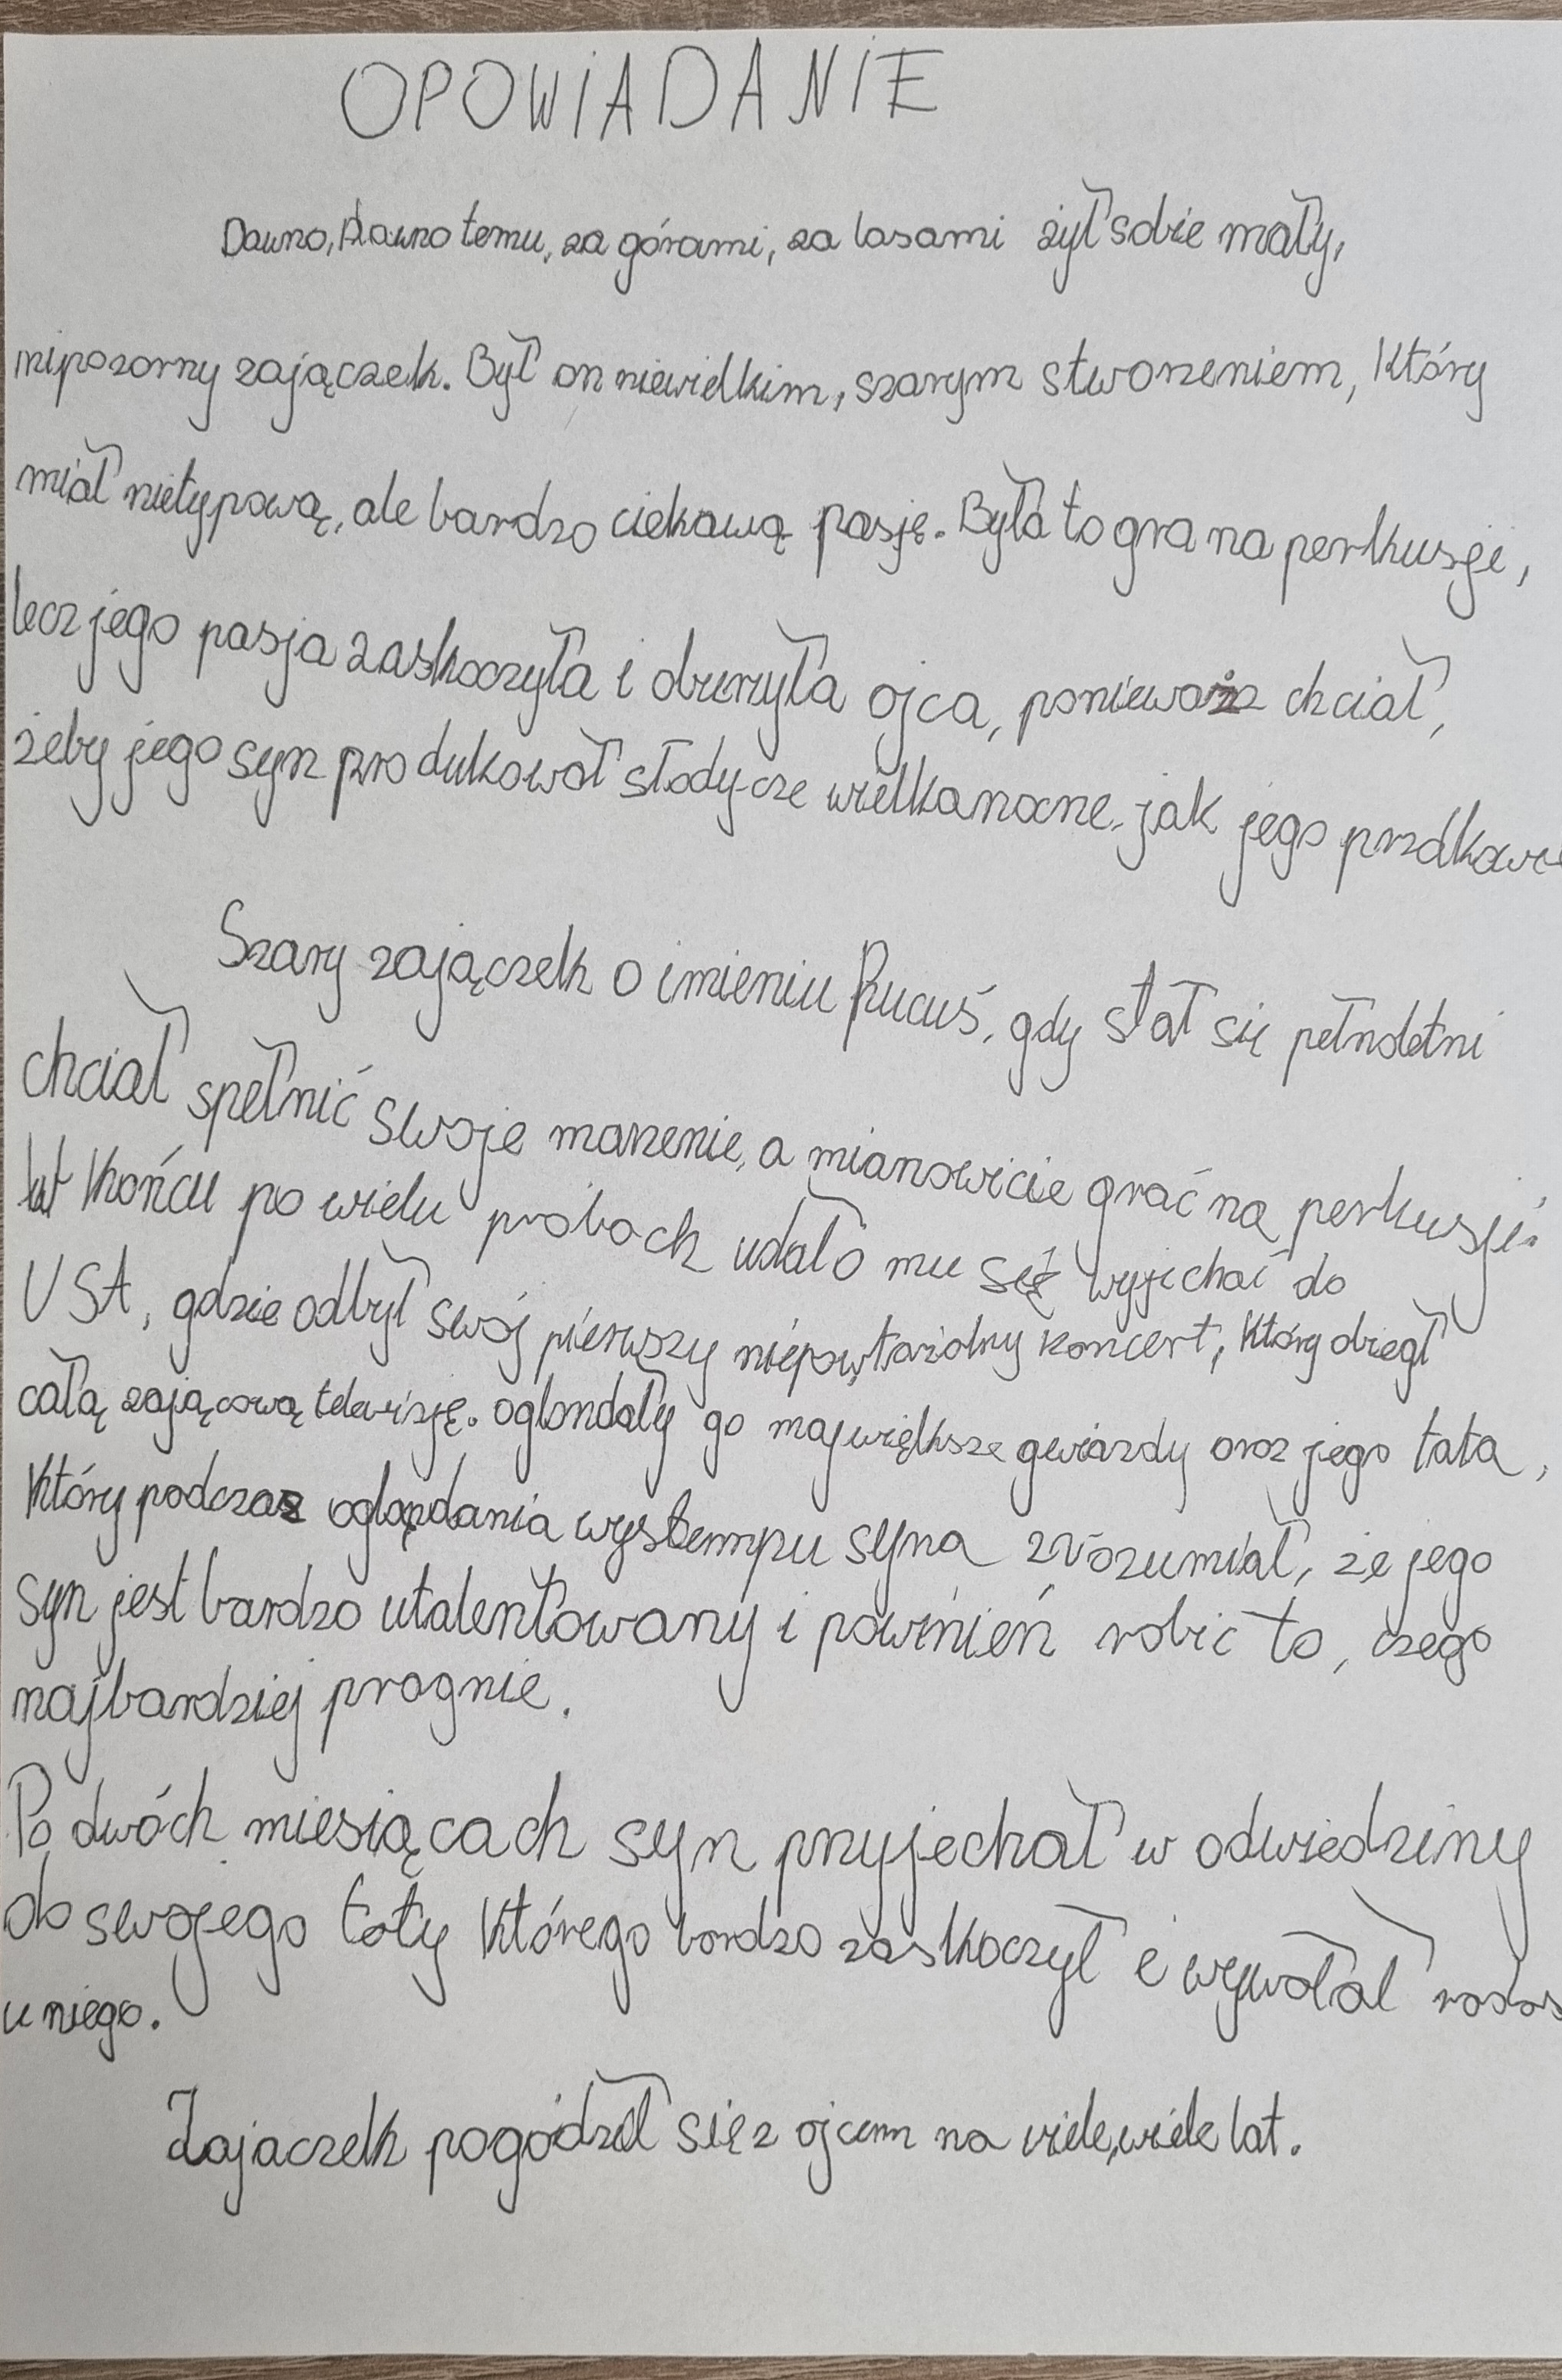 OPOWIADANIE
Dawno, dawno temu, za górami, za lasami żył sobie mały,
nipozorny zajączek. Był on niewielkim, szarym stworzeniem, który
miał nietypową, ale bardzo ciekawą pasję. Była to gra na perkusje,
lecz jego pasja zaskoczyła i oburzyła ojca, ponieważ chciał,
żeby jego syn produkował słodycze wielkanocne, jak jego przdkowie
Szary zajączek o imieniu Kucuś, gdy stał się pełnoletni
chciał spełnić swoje marzenie, a mianowicie grać na perkusje.
W końcu po wielu próbach udało mu się wyjechać do
USA, gdzie odbył swój pierwszy niepowtażalny koncert, który obiegł
całą zającową telewizję. oglondały go największe gwiazdy oraz jego tata,
który podczas oglądania wystempu syna zrozumiał, że jego
syn jest bardzo utalentowany i powinień robić to, czego
najbardziej pragnie.
Po dwóch miesiącach syn przyjechał w odwiedziny
do swojego taty którego bardzo zaskoczył i wywołał rados
u niego.
Zajaczek pogodził się z ojcem na wiele, wiele lat.